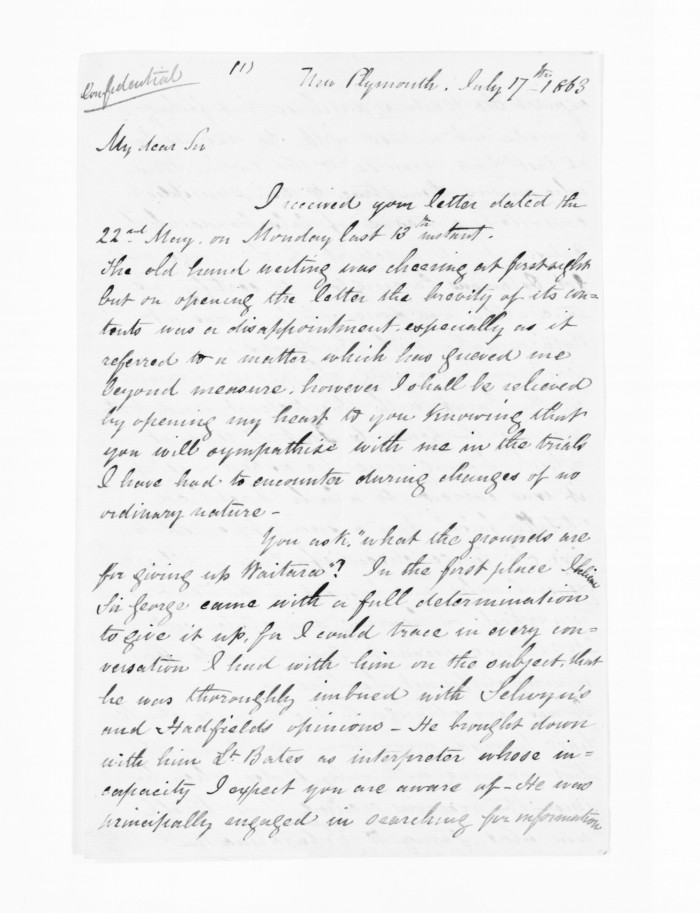 Confidential
(1)
New Plymouth. July 17th 1863
My dear Sir
I received your letter dated the
22nd May. on Monday last 13th instant.
The old hand writing was cheering at first sight
but on opening the letter the brevity of its con=
tents was a disappointment especially as it
referred to a matter which has grieved me
beyond measure, however I shall be relieved
by opening my heart to you knowing that
you will sympathise with me in the trials
I have had to encounter during changes of no
ordinary nature -
You ask, "what the grounds are
for giving up Waitara"? In the first place I believe
Sir George came with a full determination
to give it up, for I could trace in every con=
versation I had with him on the subject, that
he was thoroughly imbued with Selwyn's
and Hadfields opinions - He brought down
with him Lt Bates as interpreter whose in=
capacity I expect you are aware of - He was
principally engaged in searching for information